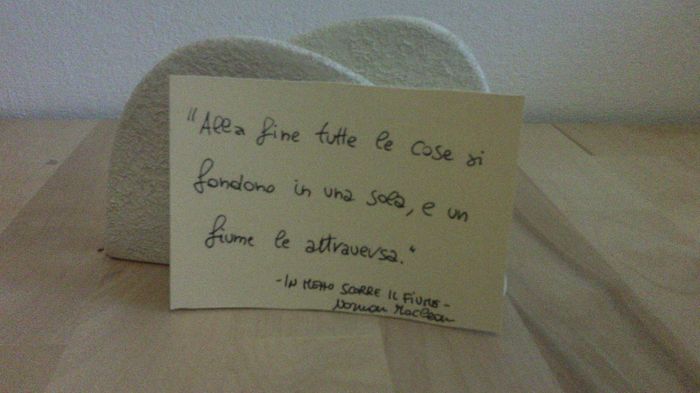 "Alla fine tutte le cose si
fondono in una sola, e un
fiume le attraversa."
-IN MEZZO SCORRE IL FIUME-
Norman Maclean